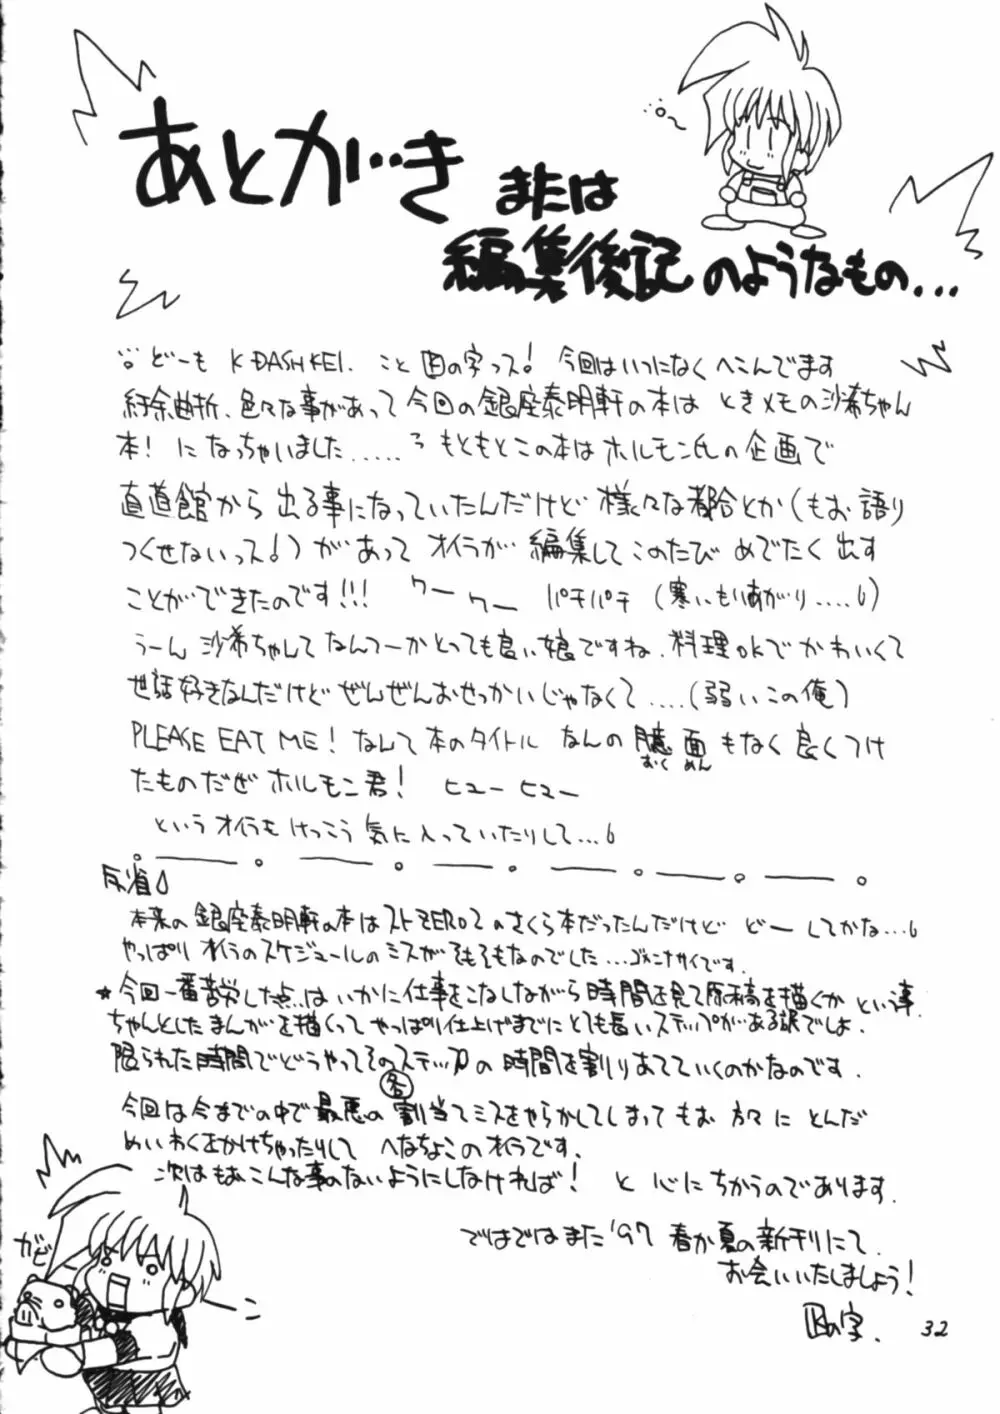 あとがき
または
編集後記のようなもの...
どーも K-DASHKEI. こと 図の字っス! 今回はいつになくへこんでます
紆余曲折、色々な事があって今回の銀座泰明軒の本は ときメモの沙希ちゃん
本! になっちゃいました..... もともとこの本はホルモン氏の企画で
直道館から出る事になっていたんだけど 様々な都合とか(もお語り
つくせないっス!)があって オイラが 編集してこのたび めでたく出す
ことができたのです!!! ワー ワー パチパチ (寒いもりあがり.....)
うーん 沙希ちゃんて なんつーかとっても良い娘ですね. 料理OKでかわいくて
世話好きなんだけど ぜんぜんおせっかいじゃなくて.....(弱いこの俺)
PLEASE EAT ME! なんて本のタイトル なんの臆面もなく良くつけ
おくめん
たものだぜ ホルモン君! ヒューヒュー
というオイラも けっこう 気に入っていたりして...
反省
本来の銀座泰明軒の本はストZERO2のさくら本だったんだけど どーしてかな...
やっぱり オイラのスケジュールのミスがそもそもなのでした...ゴメンナサイです.
★今回一番苦労した点..は いかに仕事をこなしながら時間を見て原稿を描くか という事.
ちゃんとしたまんがを描くって やっぱり仕上げまでにとても長いステップがある訳でしょ.
限られた時間でどうやってそのステップの時間を割りあてていくのかなのです.
各
今回は今までの中で最悪の割当てミスをやらかしてしまって もお 方々に とんだ
めいわくをかけちゃったりして へなちょこのオイラです.
次はもおこんな事のないようにしなければ! と 心にちかうのであります.
ではではまた'97 春か夏の新刊にて.
お会いいたしましょう!
の字.
32
ガビ